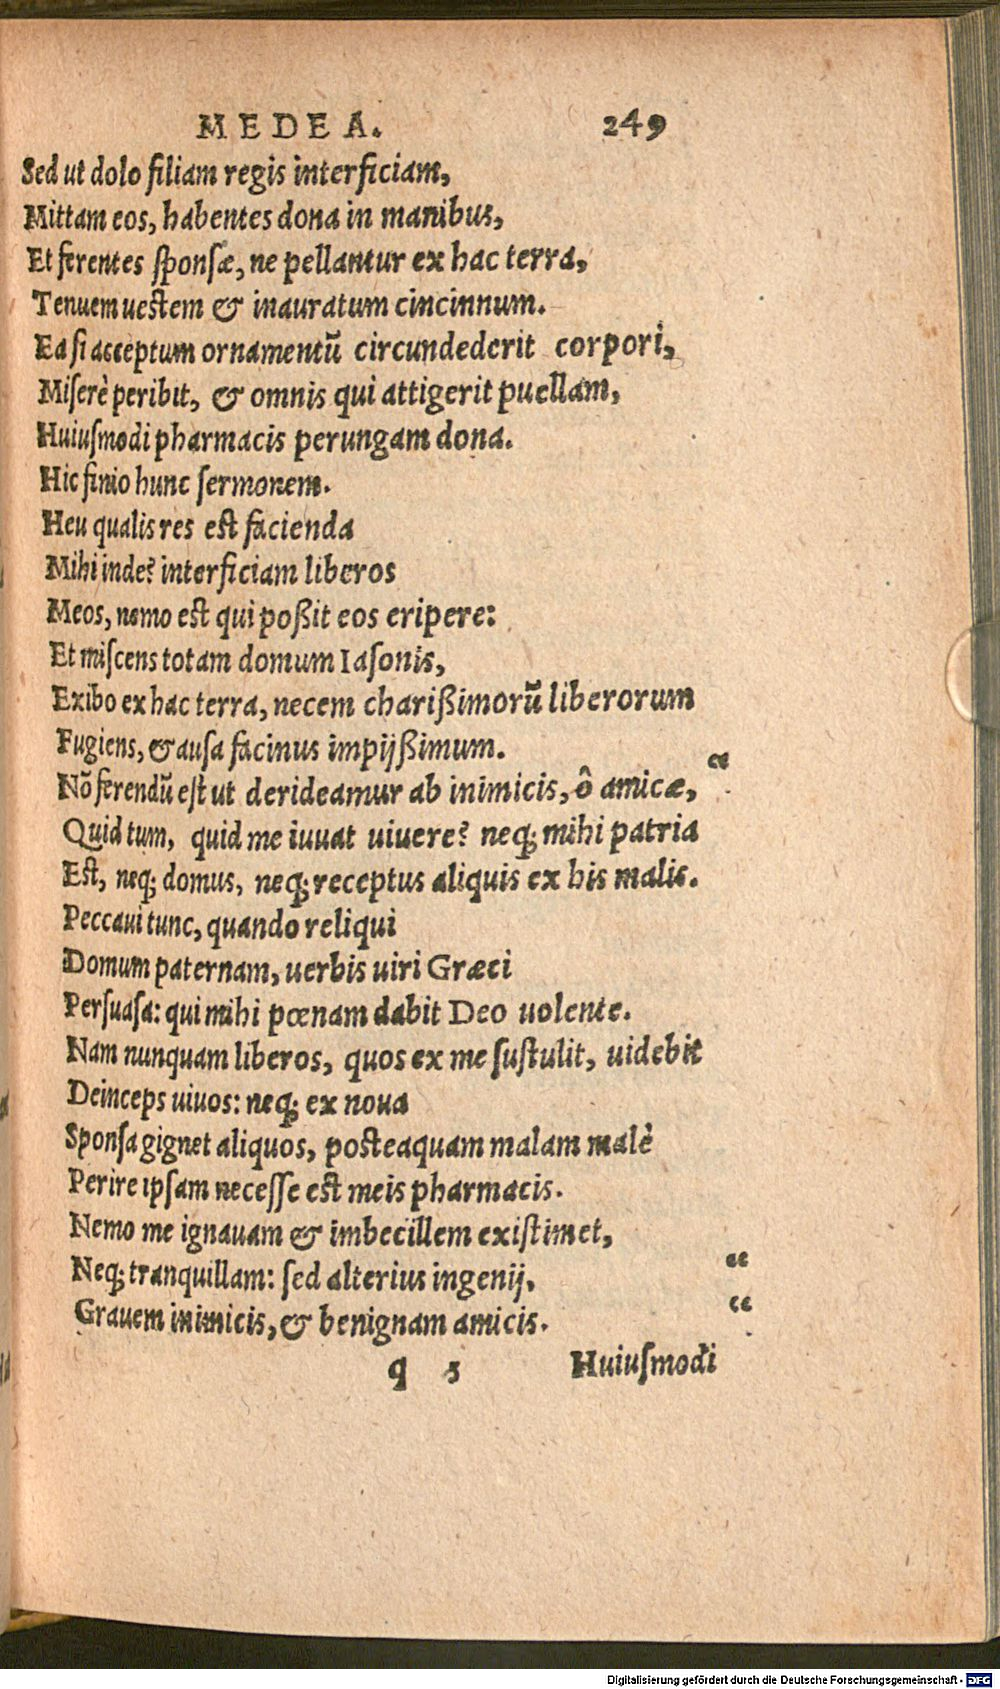 MEDEA. 249
Sed ut dolo filiam regis interficiam,
Mittam eos, habentes dona in manibus,
Et ferentes sponsæ, ne pellantur ex hac terra,
Tenuem uestem & inauratum cincinnum.
Ea si acceptum ornamentũ circundederit corpori,
Miserè peribit, & omnis qui attigerit puellam,
Huiusmodi pharmacis perungam dona.
Hic finio hunc sermonem.
Heu qualis res est facienda
Mihi inde? interficiam liberos
Meos, nemo est qui poßit eos eripere:
Et miscens totam domum Iasonis,
Exibo ex hac terra, necem charißimorũ liberorum
Fugiens, & ausa facinus impijßimum.
Nõ ferendũ est ut derideamur ab inimicis, ô amicæ, “
Quid tum, quid me iuuat uiuere? neq; mihi patria
Est, neq; domus, neq; receptus aliquis ex his malis.
Peccaui tunc, quando reliqui
Domum paternam, uerbis uiri Græci
Persuasa: qui mihi pœnam dabit Deo uolente.
Nam nunquam liberos, quos ex me sustulit, uidebit
Deinceps uiuos: neq; ex noua
Sponsa gignet aliquos, posteaquam malam malè
Perire ipsam necesse est meis pharmacis.
Nemo me ignauam & imbecillem existimet,
Neq; tranquillam: sed alterius ingenij, “
Grauem inimicis, & benignam amicis. “
q 5 Huiusmodi
Digitalisierung gefördert durch die Deutsche Forschungsgemeinschaft - DFG